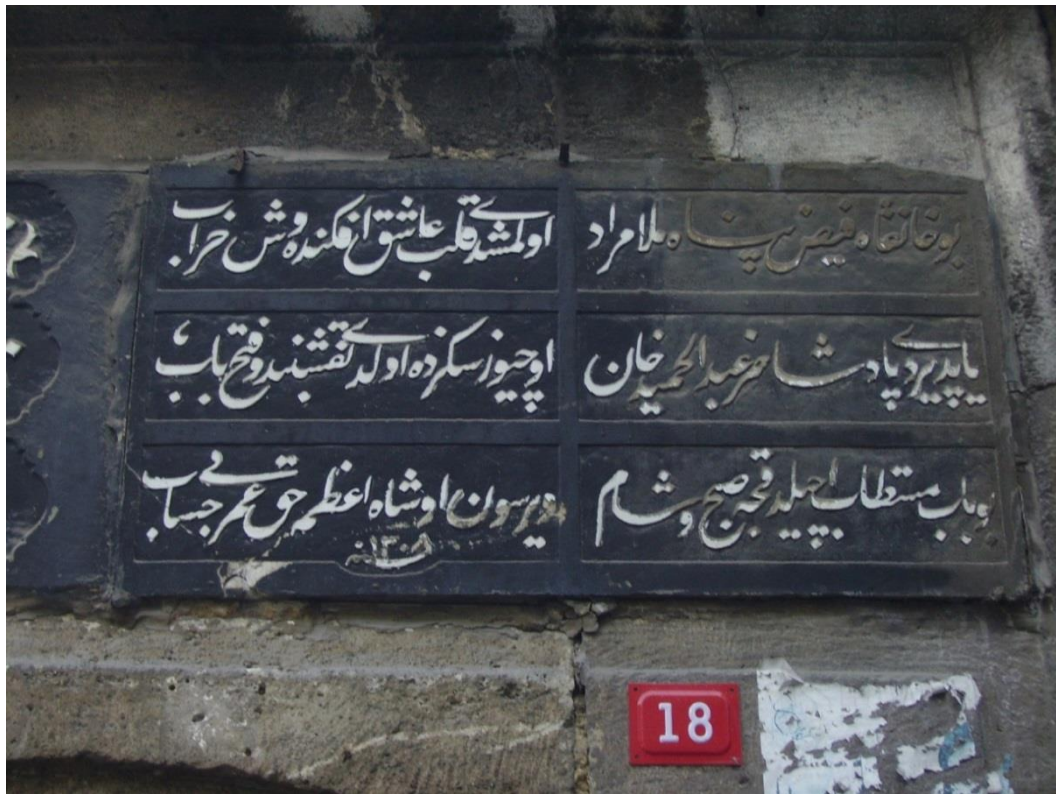 بو خانقاه فيض پناه ملا مراد
اولمشدی قلب عاشق افكنده وش خراب
ياپديردی پادشاهمز عبدالحميد خان
اوچيوز سكزده اولدی نقشبند و فتح باب
بو باب مستطاب اچيلدقجه صبح و شام
ويرسون او شاه اعظمه حق عمر بی حساب
سنه ١٣٠٨
18